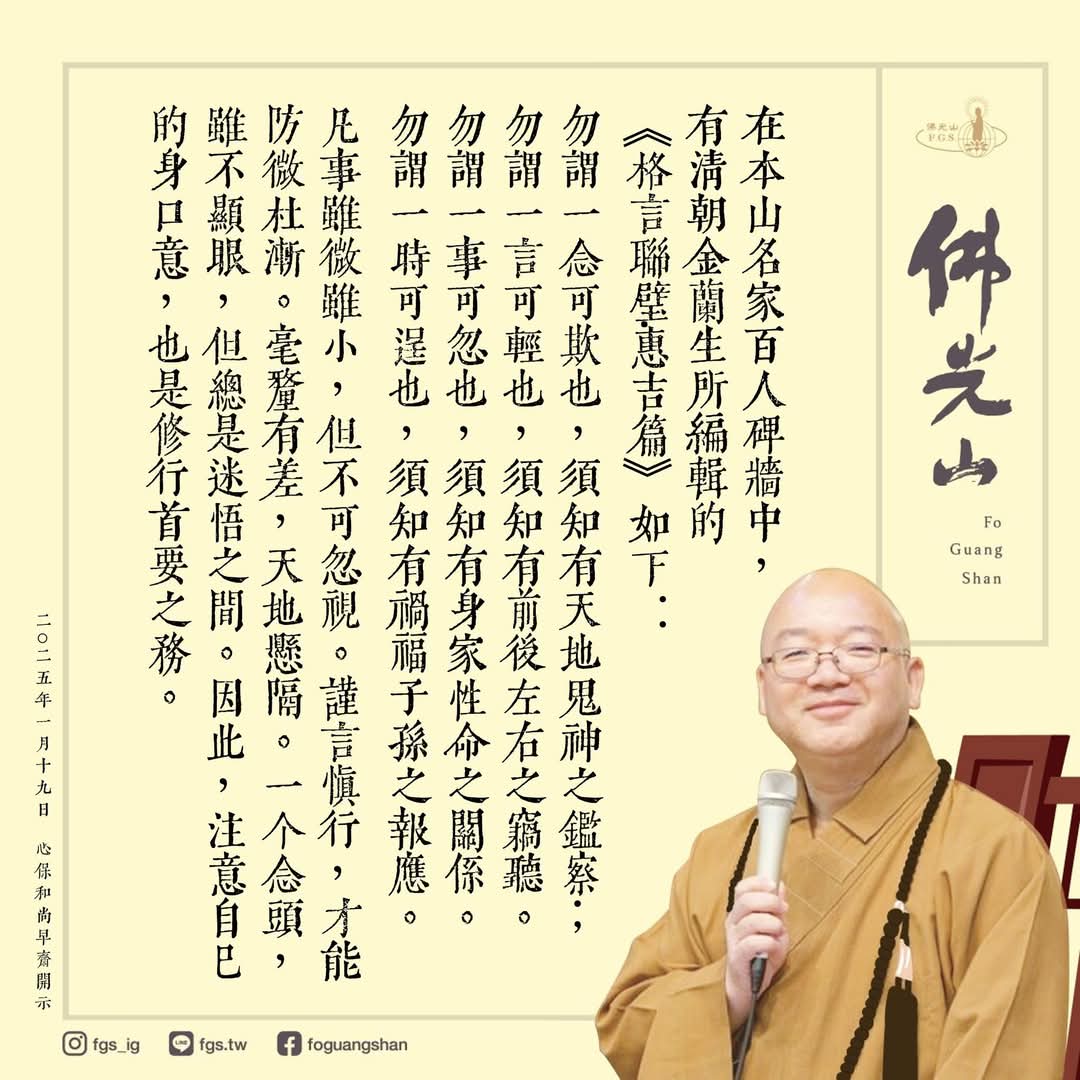 佛光山
FGS
佛光山
Fo
Guang
Shan
在本山名家百人碑牆中，
有清朝金蘭生所編輯的
《格言聯壁·惠吉篇》如下：
勿謂一念可欺也，須知有天地鬼神之鑑察；
勿謂一言可輕也，須知有前後左右之竊聽。
勿謂一事可忽也，須知有身家性命之關係。
勿謂一時可逞也，須知有禍福子孫之報應。
凡事雖微雖小，但不可忽視。謹言慎行，才能
防微杜漸。毫釐有差，天地懸隔。一个念頭，
雖不顯眼，但總是迷悟之間。因此，注意自己
的身口意，也是修行首要之務。
二〇二五年一月十九日 心保和尚早齋開示
fgs_ig
LINE
fgs.tw
foguangshan